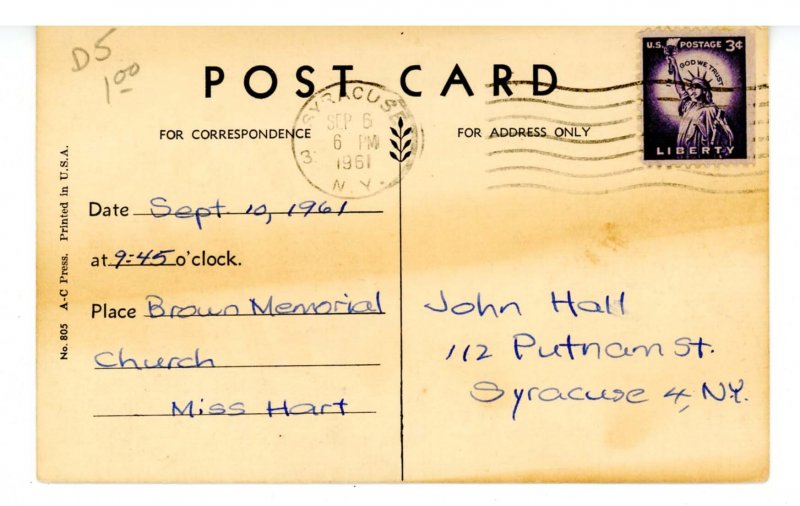 D5
1.00
POST CARD
U.S. POSTAGE 3¢
GOD WE TRUST
LIBERTY
SYRACUSE
SEP 6
6 PM
1961
N.Y.
3
FOR CORRESPONDENCE
FOR ADDRESS ONLY
No. 805 A-C Press. Printed in U.S.A.
Date Sept. 10, 1961
at 9:45 o'clock.
Place Brown Memorial
Church
Miss Hart
John Hall
112 Putnam St.
Syracuse 4, N.Y.